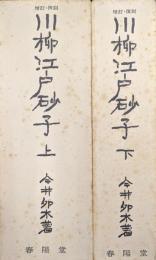 増訂・復刻
川柳江戸砂子
上
今井卯木著
春陽堂
増訂・復刻
川柳江戸砂子
下
今井卯木著
春陽堂